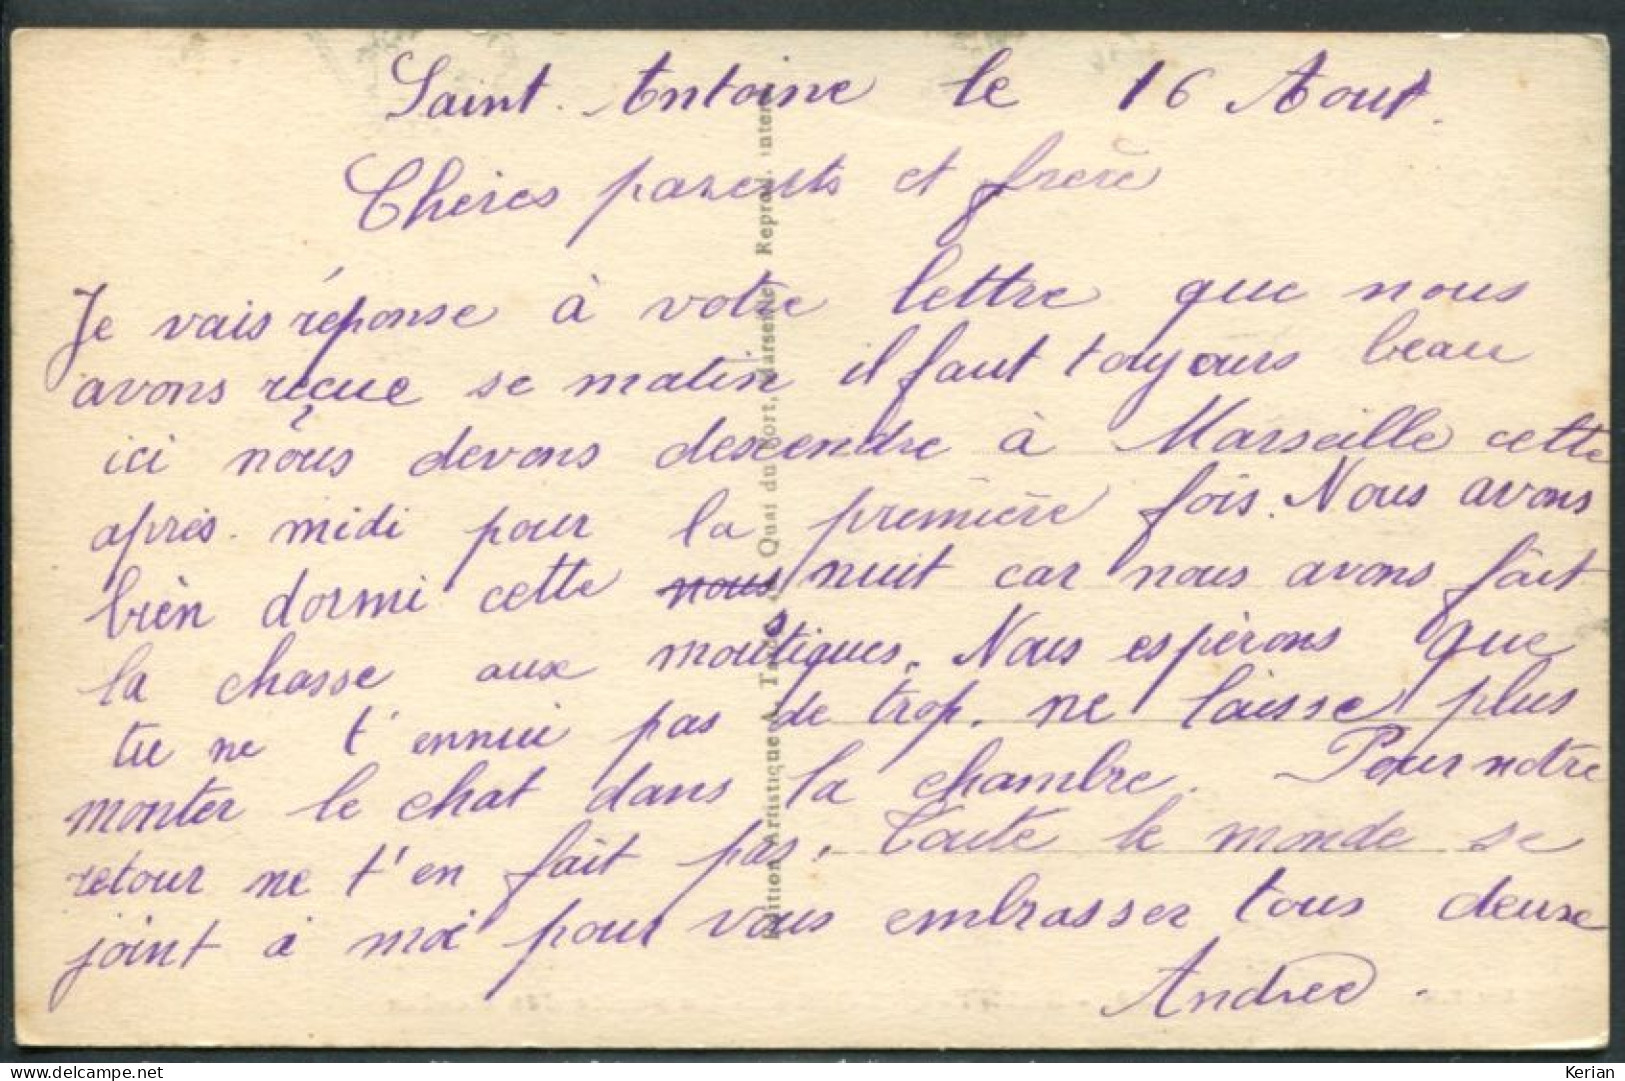 Saint Antoine le 16 Aout.
Chères parents et frère
Je vais réponse à votre lettre que nous
avons reçue se matin il faut toujours beau
ici nous devons descendre à Marseille cette
après-midi pour la première fois. Nous avons
bien dormi cette nous nuit car nous avons fait
la chasse aux moustiques. Nous espérons que
tu ne t'ennui pas de trop. ne laisse plus
monter le chat dans la chambre. Pour notre
retour ne t'en fait pas. Toute le monde se
joint à moi pour vous embrasser tous deux
Andrée.
Edition Artistique A. Quai du Port, Marseille Reprod. interd.
https://www.delcampe.net
Kerian